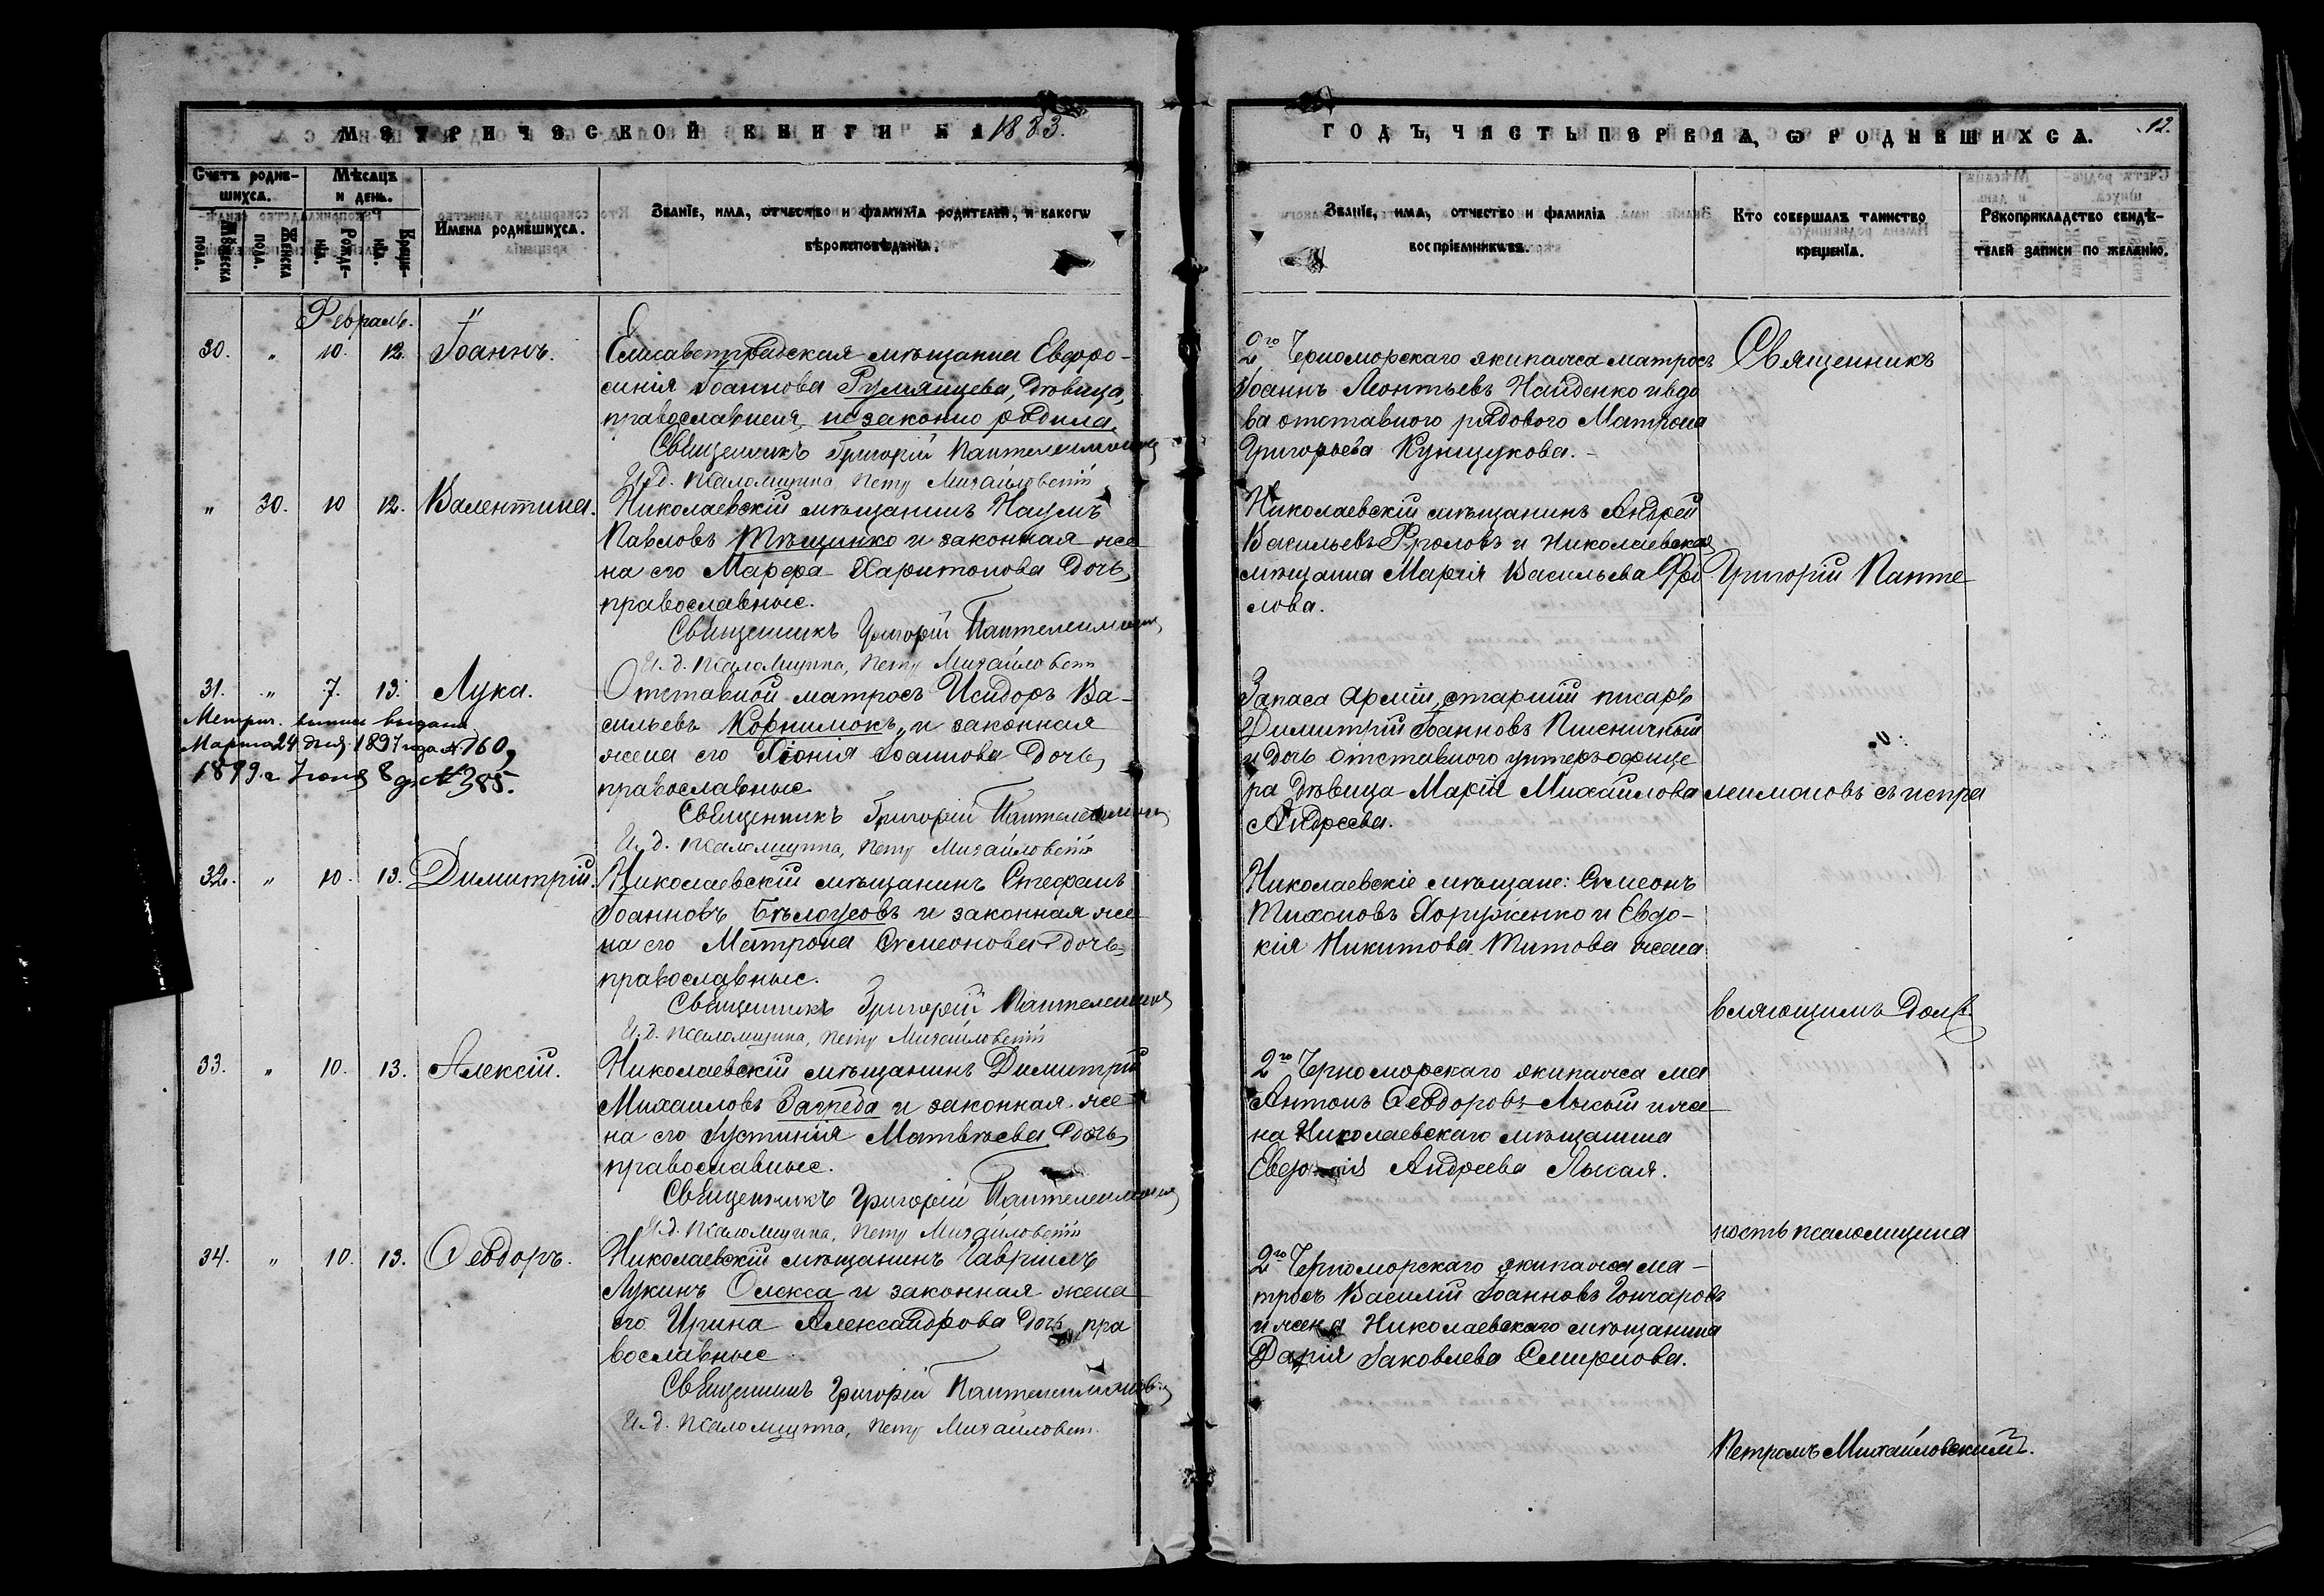 МЕТРИЧЕСКОЙ КНИГИ НА 1883.
Счетъ родив-
шихся.
Мѣсяцъ
и день.
Мужеска
пола.
Женска
пола.
Рожде-
нія.
Креще-
нія.
Имена родившихся.
Званіе, имя, отчество и фамилія родителей, и какого
вѣроисповѣданія.
Февраль.
30. " 10. 12. Іоаннъ.
Елисаветградская мѣщанка Евфро-
синія Іоаннова Румянцева, Дѣвица,
православная, незаконно родила.
Священникъ Григорій Пантелеимоновъ
И. д. псаломщика, Петръ Михайловскій
" 30. 10 12. Валентина.
Николаевскій мѣщанинъ Наумъ
Павловъ Тѣщинко и законная же-
на его Марфа Харитонова дочь,
православные.
Священникъ Григорій Пантелеимоновъ
И. д. псаломщика, Петръ Михайловскій
31. " 7. 13. Лука.
Метрич. выпись выдана
Марта 24 дня 1897 года № 160,
1899 г. Іюня 8 д. № 385.
Отставной матросъ Исидоръ Ва-
сильевъ Корнимокъ, и законная
жена его Хіонія Іоаннова дочь,
православные
Священникъ Григорій Пантелеимоновъ
И. д. псаломщика, Петръ Михайловскій
32. " 10. 13. Димитрій.
Николаевскій мѣщанинъ Стефанъ
Іоанновъ Бѣлоусовъ и законная же-
на его Матрона Симеонова дочь,
православные.
Священникъ Григорій Пантелеимоновъ
И. д. псаломщика, Петръ Михайловскій
33. " 10. 13. Алексій.
Николаевскій мѣщанинъ Димитрій
Михаиловъ и законная же-
на его Іустинія Матвѣева дочь,
православные.
Священникъ Григорій Пантелеимоновъ
И. д. псаломщика, Петръ Михайловскій
34. " 10. 13. Ѳеодоръ.
Николаевскій мѣщанинъ Гавріилъ
Лукинъ Олекса и законная жена
его Ирина Александрова дочь, пра
вославные
Священникъ Григорій Пантелеимоновъ
И. д. псаломщика, Петръ Михайловскій
ГОДЪ, ЧАСТЬ ПЕРВАЯ, Ѡ РОДИВШИХСЯ. 12.
Званіе, имя, отчество и фамилія
воспріемниковъ.
Кто совершалъ таинство
крещенія.
Рукоприкладство свидѣ-
телей записи по желанію.
2го Черноморскаго экипажа матросъ
Іоаннъ Леонтьевъ Найденко и вдо
ва отставного рядового Матрона
Григорьева Кунщукова.
Николаевскій мѣщанинъ Андрей
Васильевъ Фроловъ и Николаевская
мѣщанка Марія Васильева Фро
лова.
Запаса Арміи, старшій писарь
Димитрій Іоанновъ Пшеничный
и дочь отставного унтеръ-офице
ра Дѣвица Марія Михайлова
Андреева.
Николаевскіе мѣщане: Симеонъ
Тихоновъ Хоруженко и Евдо-
кія Никитова Титова жена
2го Черноморскаго экипажа ма
Антонъ Ѳеодоровъ Лысый и же
на Николаевскаго мѣщанина
Андреева Лысая.
2го Черноморскаго экипажа ма-
тросъ Василій Іоанновъ Гончаровъ
и жена Николаевскаго мѣщанина
Дарія Іаковлева Смирнова.
Священникъ
Григорій Панте
леимоновъ съ испра
вляющимъ долж
ность псаломщика
Петромъ Михайловскимъ.